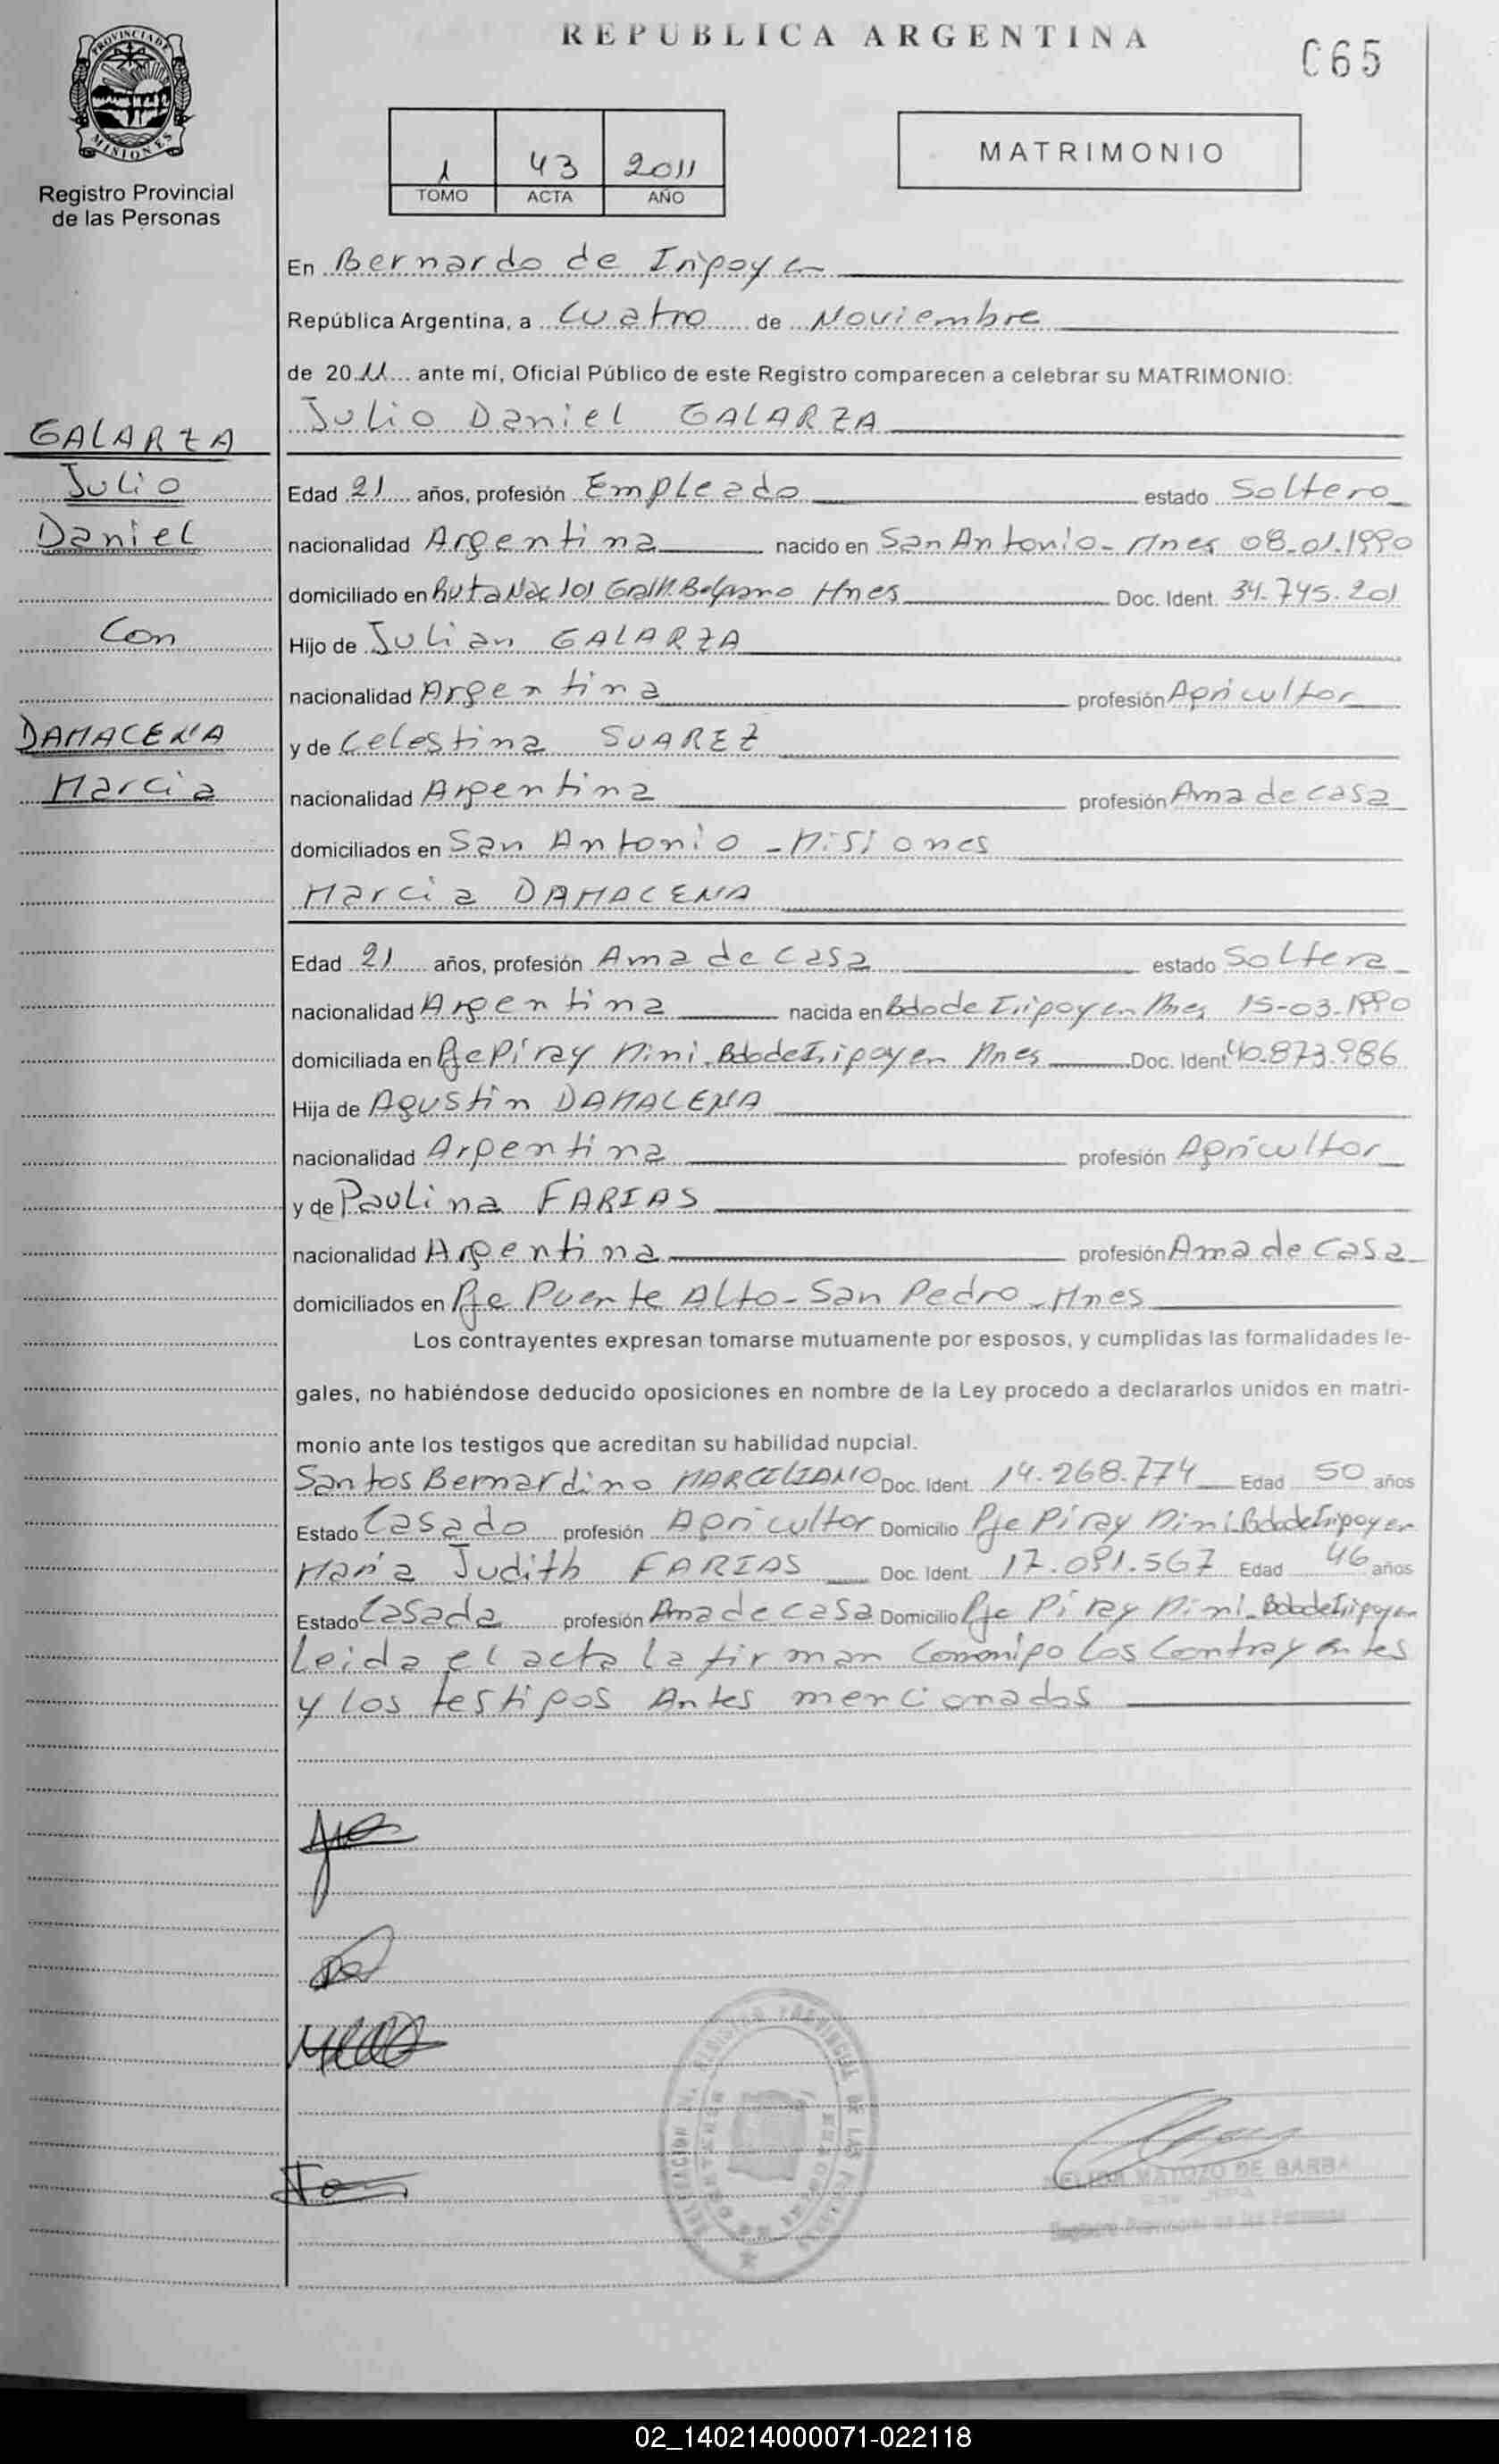 REPUBLICA ARGENTINA
C65
PROVINCIA DE
MISIONES
Registro Provincial
de las Personas
1 43 2011
TOMO ACTA AÑO
MATRIMONIO
En Bernardo de Irigoyen
República Argentina, a Cuatro de Noviembre
de 2011 ante mí, Oficial Público de este Registro comparecen a celebrar su MATRIMONIO:
Julio Daniel GALARZA
GALARZA
Julio
Daniel
Con
DAMACENA
Marcia
Edad 21 años, profesión Empleado estado Soltero
nacionalidad Argentina nacido en San Antonio - Mnes 08.01.1990
domiciliado en Ruta Nac 101 Gral M. Belgrano Mnes Doc. Ident. 34.745.201
Hijo de Julian GALARZA
nacionalidad Argentina profesión Agricultor
y de Celestina SUAREZ
nacionalidad Argentina profesión Ama de casa
domiciliados en San Antonio - Misiones
Marcia DAMACENA
Edad 21 años, profesión Ama de Casa estado Soltera
nacionalidad Argentina nacida en Bdo de Irigoyen Mnes 15-03-1990
domiciliada en Pje Piray Mini - Bdo de Irigoyen Mnes Doc. Ident. 40.873.986
Hija de Agustin DAMACENA
nacionalidad Argentina profesión Agricultor
y de Paulina FARIAS
nacionalidad Argentina profesión Ama de Casa
domiciliados en Pje Puente Alto - San Pedro - Mnes
Los contrayentes expresan tomarse mutuamente por esposos, y cumplidas las formalidades le-
gales, no habiéndose deducido oposiciones en nombre de la Ley procedo a declararlos unidos en matri-
monio ante los testigos que acreditan su habilidad nupcial.
Santos Bernardino MARCELIANO Doc. Ident. 14.268.774 Edad 50 años
Estado Casado profesión Agricultor Domicilio Pje Piray Mini - Bdo de Irigoyen
Maria Judith FARIAS Doc. Ident. 17.091.567 Edad 46 años
Estado Casada profesión Ama de casa Domicilio Pje Piray Mini - Bdo de Irigoyen
Leida el acta la firman Conmigo los Contrayentes
y los testigos Antes mencionados
MATOZO DE BARBA
Registro Provincial de las Personas
02_140214000071-022118